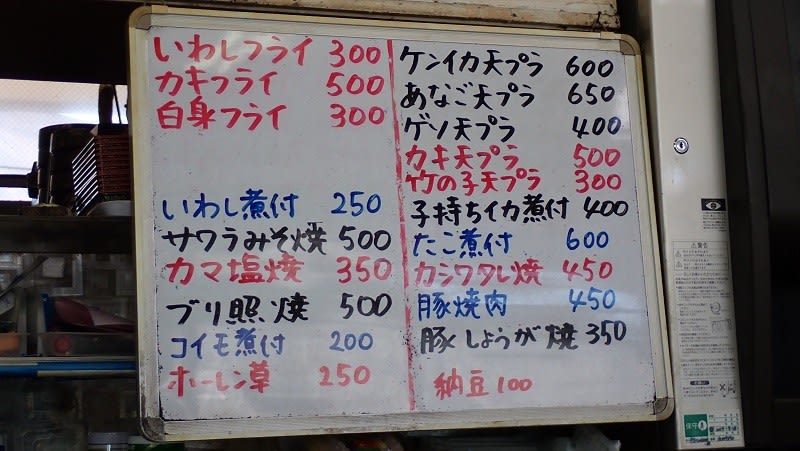 いわしフライ 300
カキフライ 500
白身フライ 300
いわし煮付 250
サワラみそ焼 500
カマ塩焼 350
ブリ照焼 500
コイモ煮付 200
ホーレン草 250
ケンイカ天プラ 600
あなご天プラ 650
ゲソ天プラ 400
カキ天プラ 500
竹の子天プラ 300
子持ちイカ煮付 400
たこ煮付 600
カシワタレ焼 450
豚焼肉 450
豚しょうが焼 350
納豆 100
警告
保守